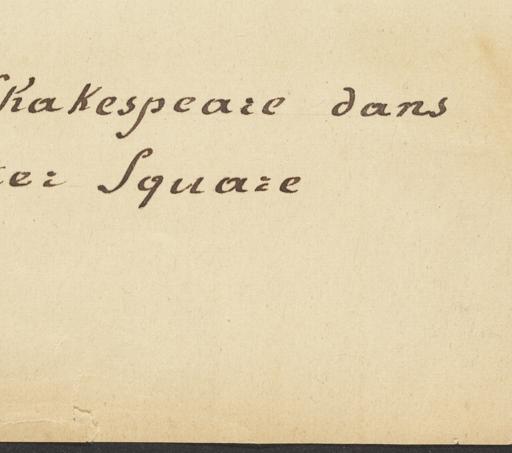 Shakespeare dans
ter Square